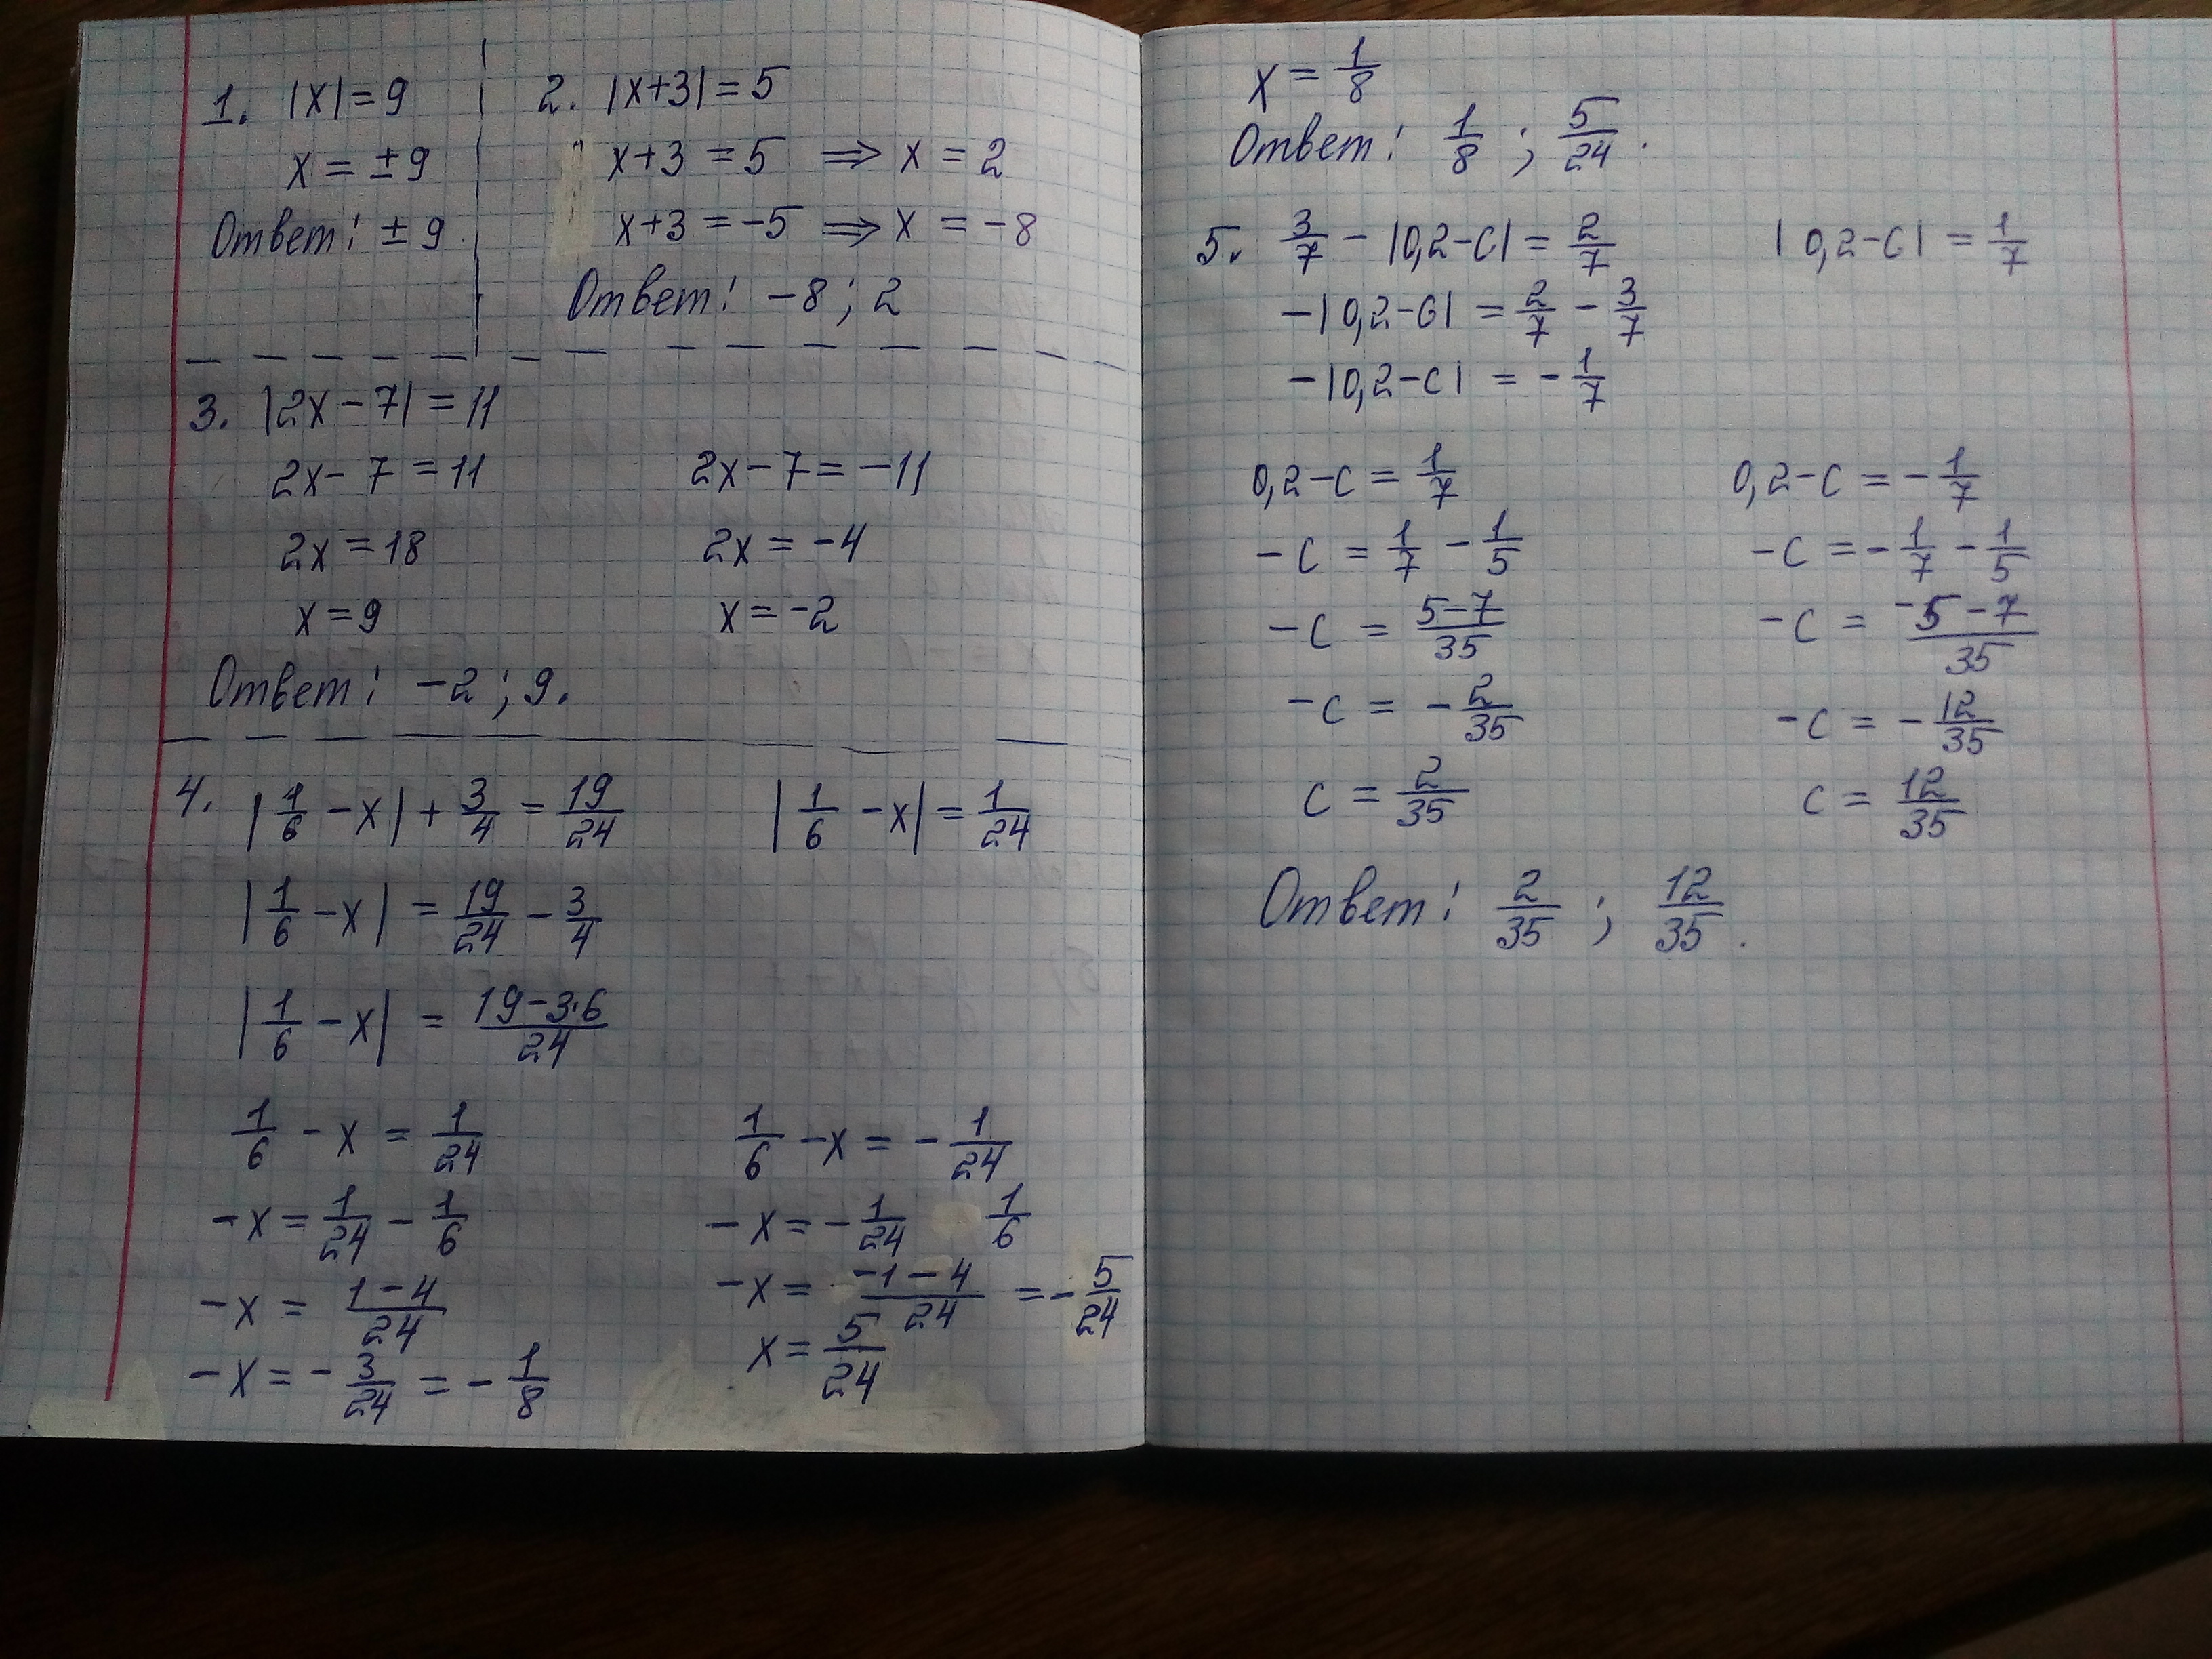 1. |x|=9
x = ±9
Ответ: ±9.
2. |x+3|=5
x+3 = 5 ⇒ x = 2
x+3 = -5 ⇒ x = -8
Ответ: -8; 2
3. |2x-7|=11
2x-7=11
2x=18
x=9
2x-7=-11
2x=-4
x=-2
Ответ: -2; 9.
4. |1/6 - x| + 3/4 = 19/24
|1/6 - x| = 1/24
|1/6 - x| = 19/24 - 3/4
|1/6 - x| = (19-3·6)/24
1/6 - x = 1/24
-x = 1/24 - 1/6
-x = (1-4)/24
-x = -3/24 = -1/8
1/6 - x = -1/24
-x = -1/24 1/6
-x = (-1-4)/24 = -5/24
x = 5/24
x = 1/8
Ответ: 1/8; 5/24.
5. 3/7 - |0,2-c| = 2/7
|0,2-c| = 1/7
-|0,2-c| = 2/7 - 3/7
-|0,2-c| = -1/7
0,2-c = 1/7
-c = 1/7 - 1/5
-c = (5-7)/35
-c = -2/35
c = 2/35
0,2-c = -1/7
-c = -1/7 - 1/5
-c = (-5-7)/35
-c = -12/35
c = 12/35
Ответ: 2/35; 12/35.